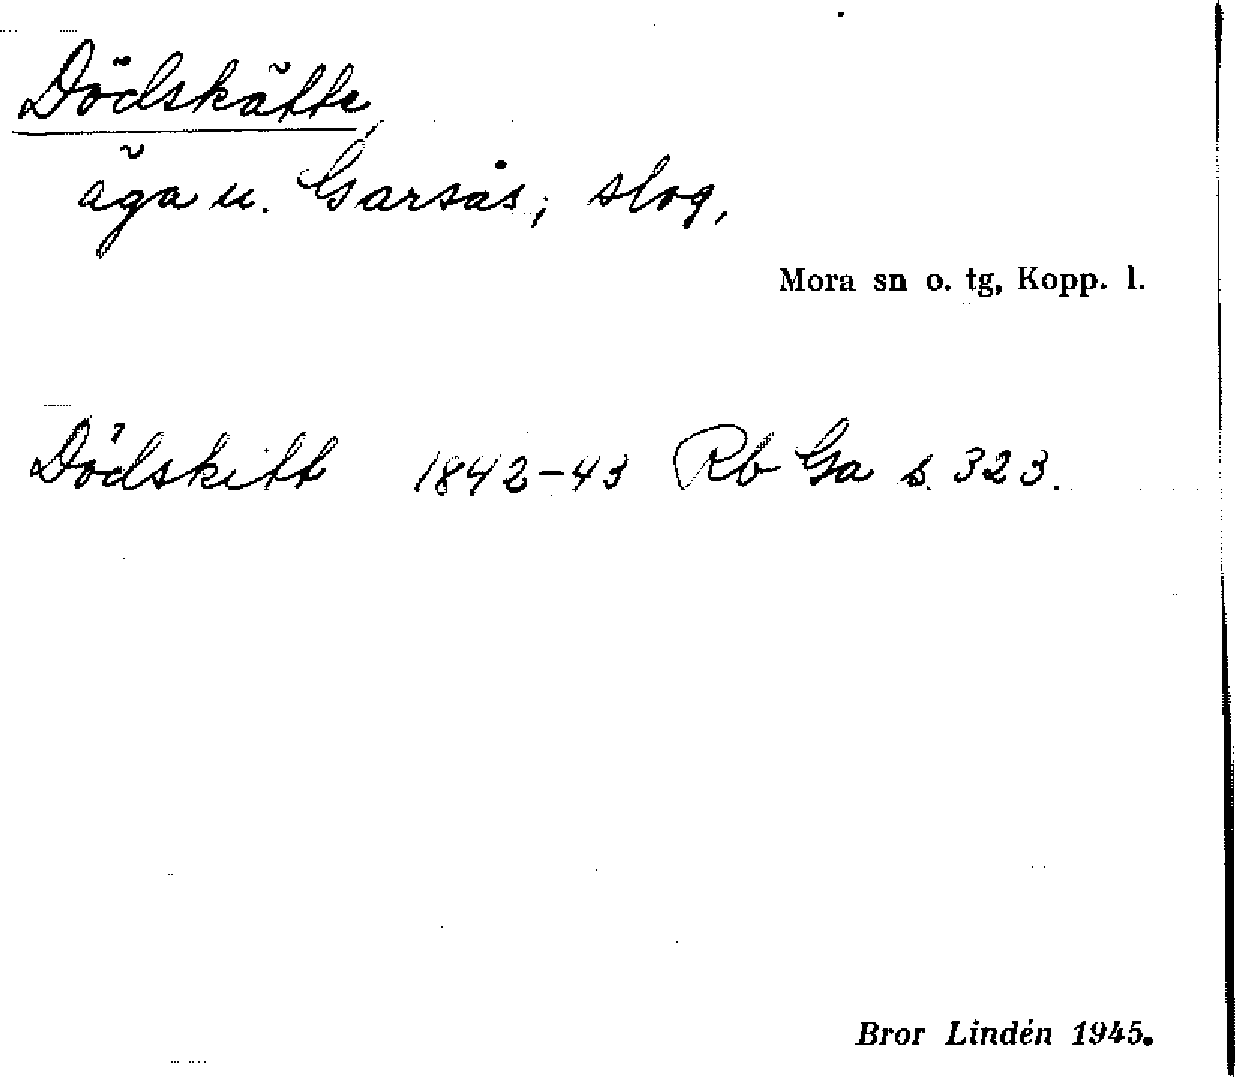 Dödskätte,
äga u. Garsås; slog,
Mora sn o. tg, Kopp. l.
Dödskitt 1842-43 Rb Ga s. 323.
Bror Lindén 1945.